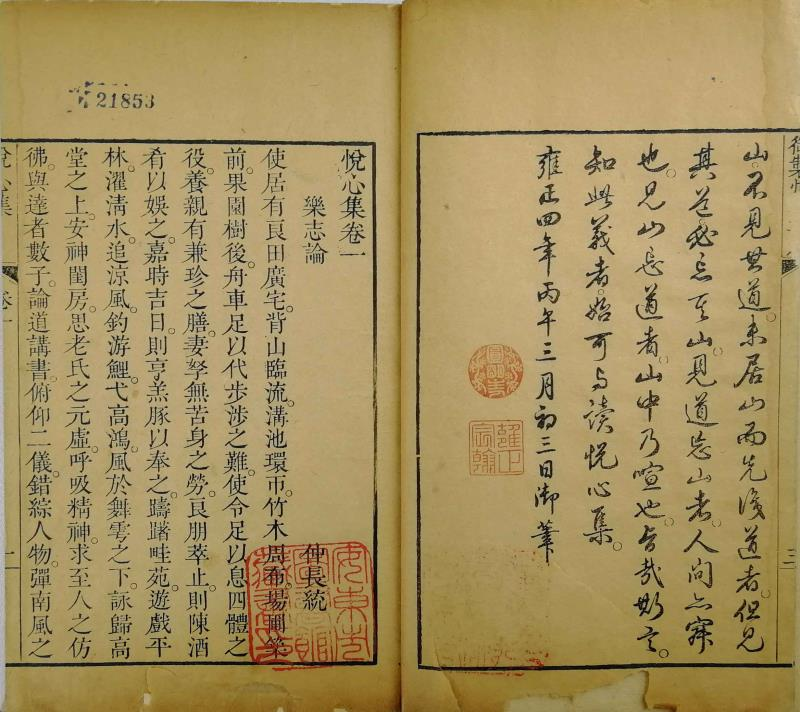 山不見其道未居山而先識道者但見
其道必忘其山見道忘山者人間亦寂
也見山忘道者山中乃喧也旨哉斯言
知此義者始可与讀悅心集
雍正四年丙午三月初三日御筆
雍正
宸翰
21853
悅心集卷一
樂志論 仲長統
使居有良田廣宅背山臨流溝池環帀竹木周布場圃築
前果園樹後舟車足以代步涉之難使令足以息四體之
役養親有兼珍之膳妻孥無苦身之勞良朋萃止則陳酒
肴以娛之嘉時吉日則亨羔豚以奉之躊躇畦苑遊戲平
林濯清水追涼風釣游鯉弋高鴻風於舞雩之下詠歸高
堂之上安神閨房思老氏之元虛呼吸精神求至人之仿
彿與達者數子論道講書俯仰二儀錯綜人物彈南風之
悅心集 卷一 一